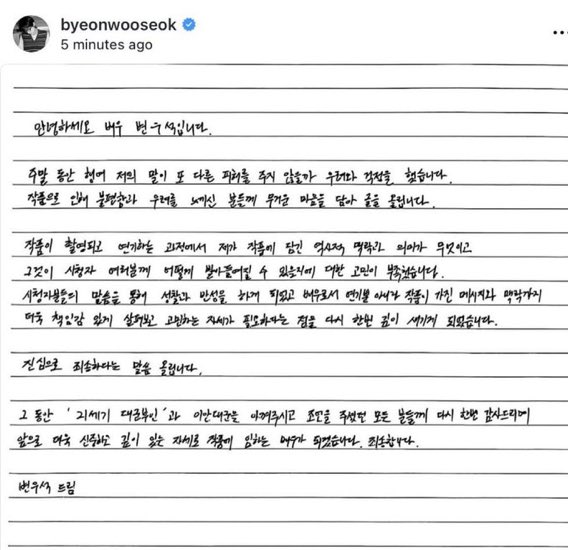 byeonwooseok
5 minutes ago
안녕하세요 배우 변우석입니다.
주말 동안 행여 저의 말이 또 다른 피해를 주지 않을까 우려와 걱정을 했습니다.
작품으로 인해 불편함과 우려를 느끼신 분들께 무거운 마음을 담아 글을 올립니다.
작품이 촬영되고 연기하는 과정에서 제가 작품에 담긴 역사적 맥락과 의미가 무엇이고
그것이 시청자 여러분께 어떻게 받아들여질 수 있을지에 대한 고민이 부족했습니다.
시청자분들의 말씀을 통해 성찰과 반성을 하게 되었고 배우로서 연기뿐 아니라 작품이 가진 메시지와 맥락까지
더욱 책임감 있게 살펴보고 고민하는 자세가 필요하다는 점을 다시 한번 깊이 새기게 되었습니다.
진심으로 죄송하다는 말씀 올립니다.
그 동안 '21세기 대군부인'과 이안대군을 아껴주시고 조언을 주셨던 모든 분들께 다시 한번 감사드리며
앞으로 더욱 신중하고 깊이 있는 자세로 작품에 임하는 배우가 되겠습니다. 죄송합니다.
변우석 드림